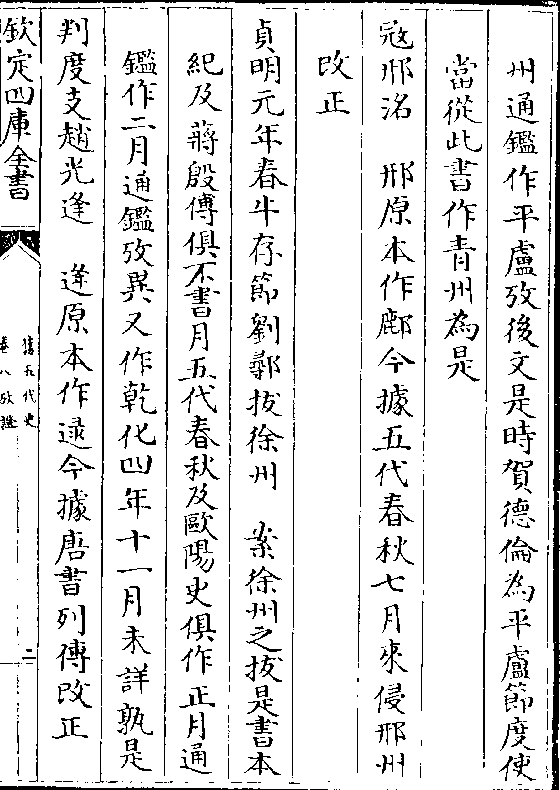 州通鑑作平盧攷後文是時賀德倫為平盧節度使
當從此書作青州為是
寇邢洺　邢原本作鄜今據五代春秋七月來侵邢州
改正
貞明元年春牛存節劉鄩拔徐州　案徐州之拔是書本
紀及蔣殷傳俱不書月五代春秋及歐陽史俱作正月通
鑑作二月通鑑攷異又作乾化四年十一月未詳孰是
判度支趙光逢　逢原本作逯今據唐書列傳改正
欽定四庫全書
舊五代史
卷八攷證
二